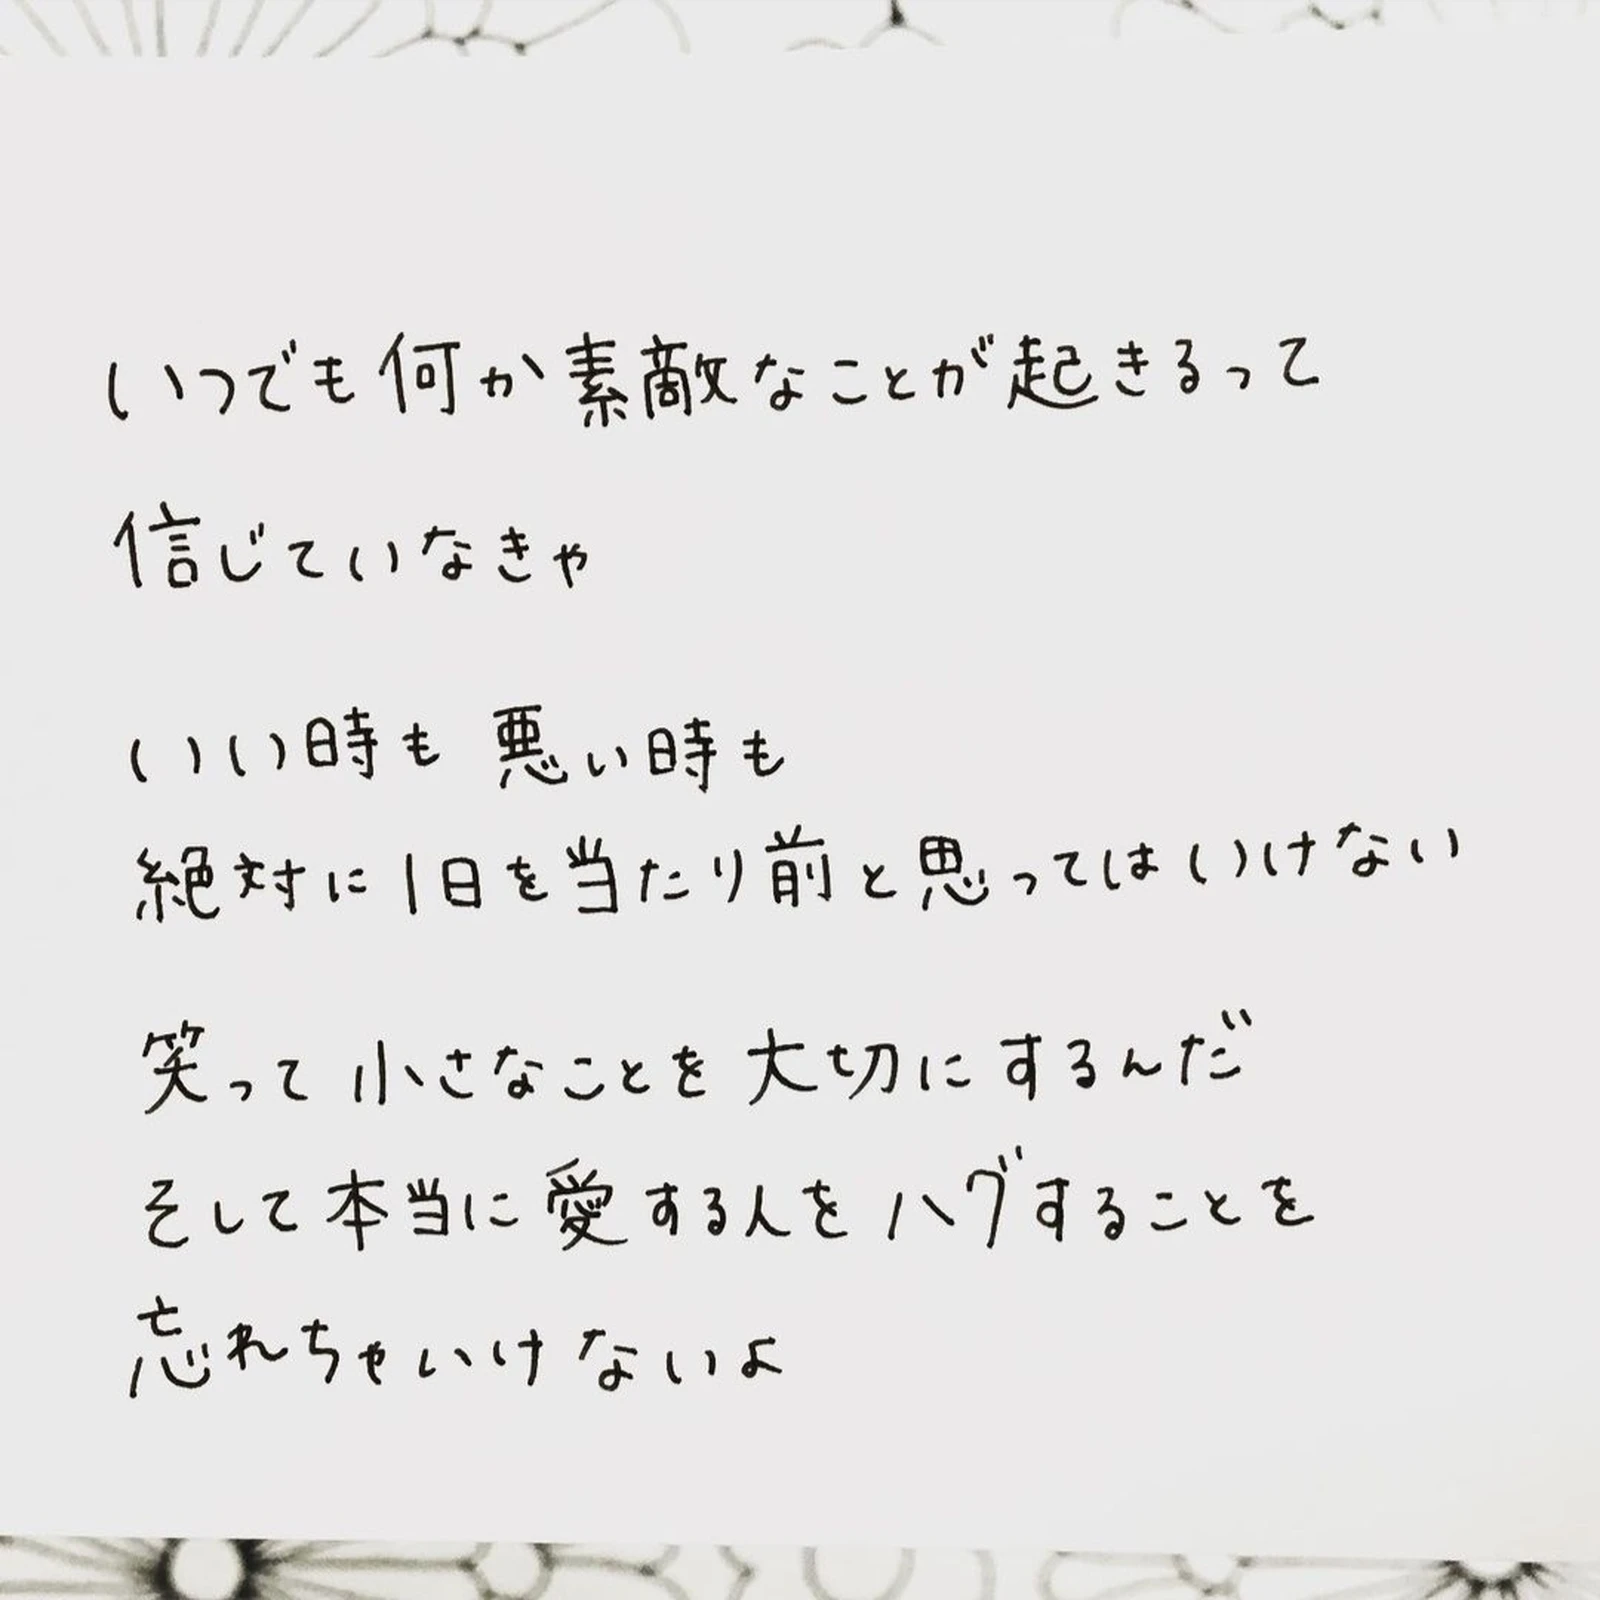 いつでも何か素敵なことが起きるって
信じていなきゃ
いい時も 悪い時も
絶対に1日を当たり前と思ってはいけない
笑って小さなことを大切にするんだ
そして本当に愛する人をハグすることを
忘れちゃいけないよ